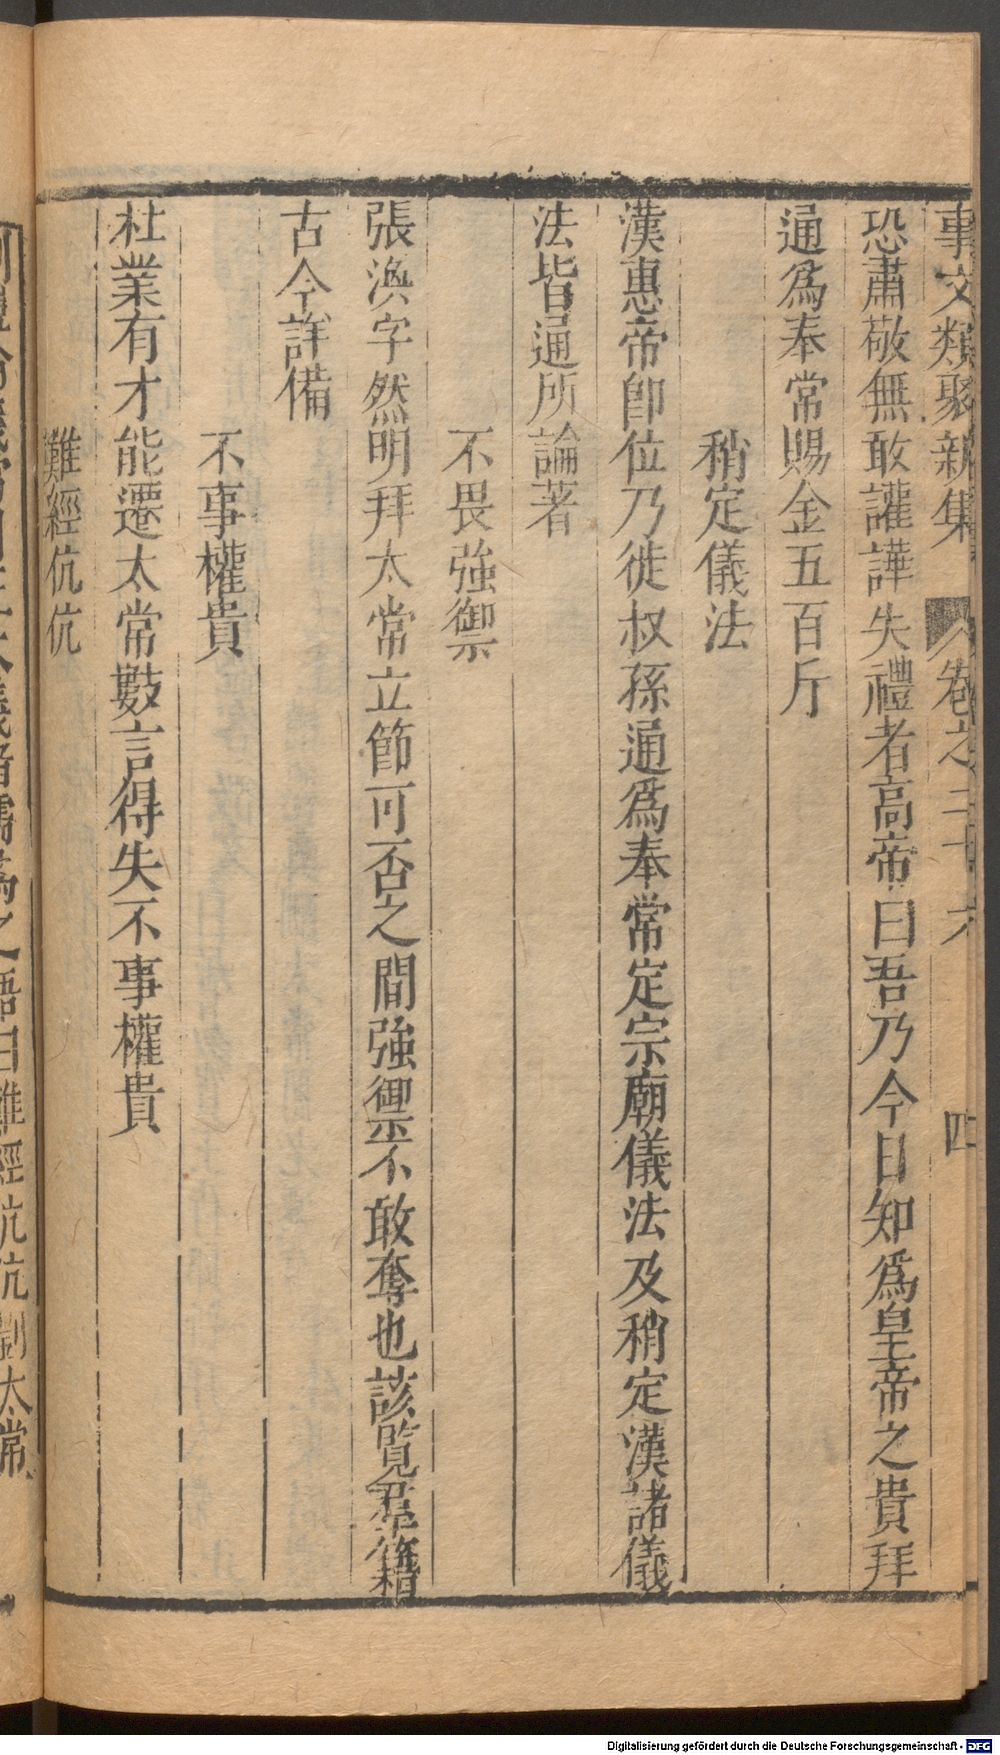 事文類聚新集 卷之二十六 四
恐肅敬無敢讙譁失禮者高帝曰吾乃今日知爲皇帝之貴拜
通爲奉常賜金五百斤
稍定儀法
漢惠帝卽位乃徙叔孫通爲奉常定宗廟儀法及稍定漢諸儀
法皆通所論著
不畏強禦
張渙字然明拜太常立節可否之間強禦不敢奪也該覧羣籍
古今詳備
不事權貴
杜業有才能遷太常數言得失不事權貴
難經伉伉
之語曰難經伉伉劉太常
Digitalisierung gefördert durch die Deutsche Forschungsgemeinschaft - DFG